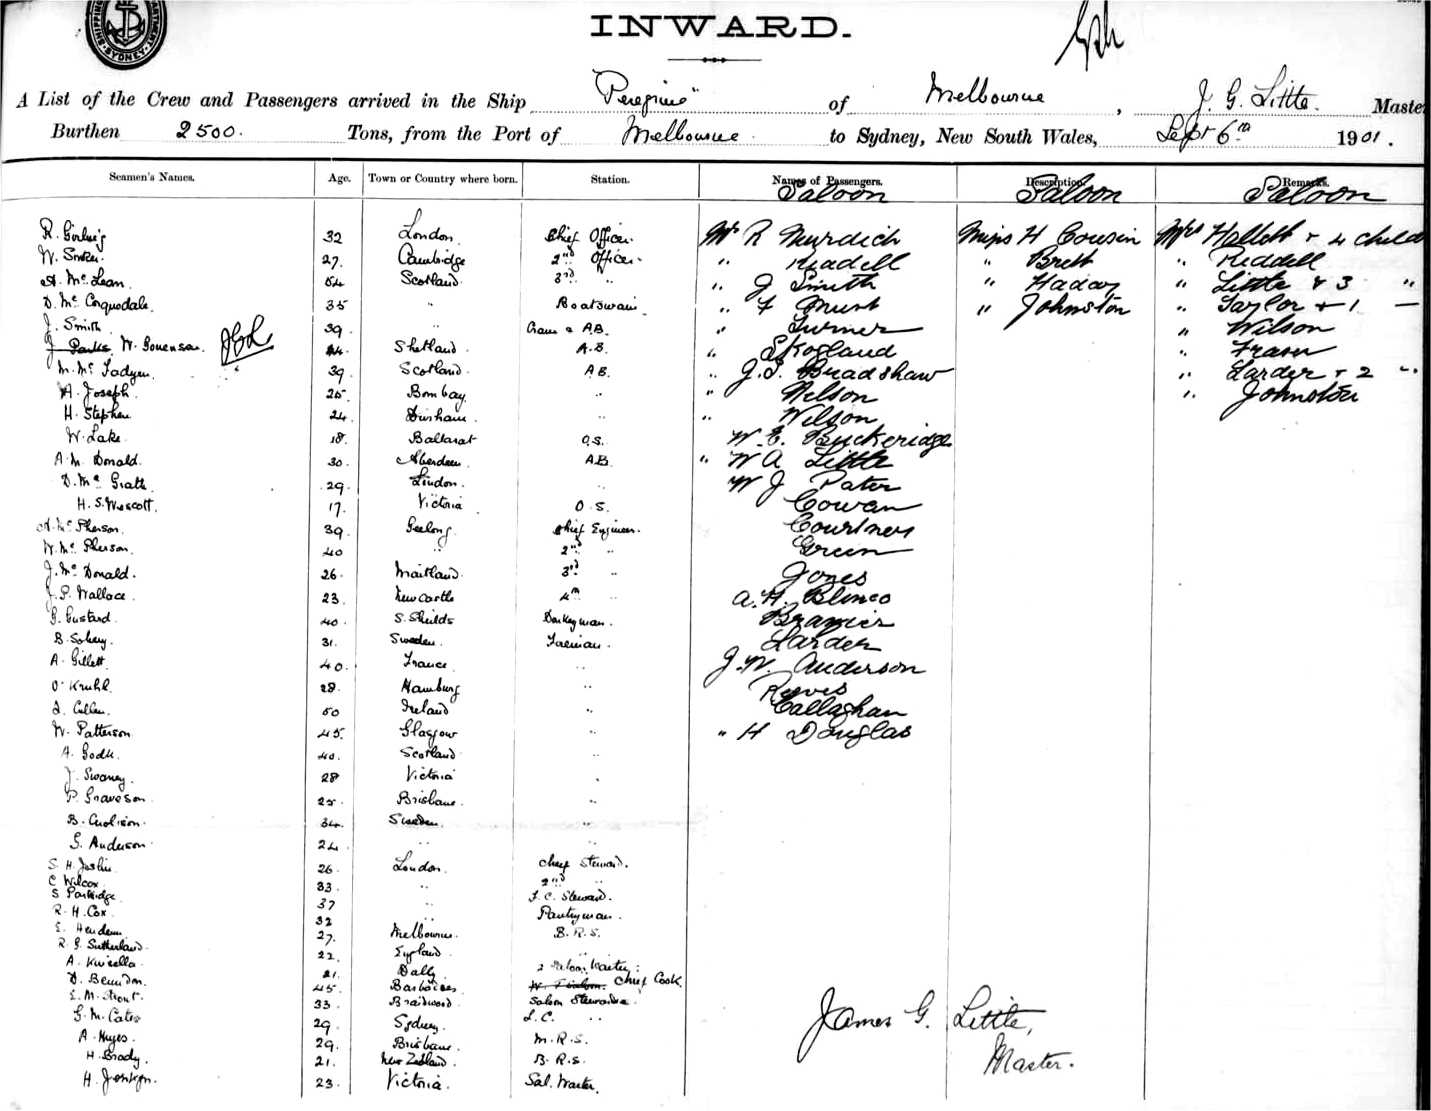 INWARD.
A List of the Crew and Passengers arrived in the Ship "Peregrine" of Melbourne, J. G. Little. Master
Burthen 2500. Tons, from the Port of Melbourne to Sydney, New South Wales, Sept 6th 1901.
Seamen's Names. Age. Town or Country where born. Station. Names of Passengers. Description. Remarks.
Saloon Saloon Saloon
R. 32 London. Chief Officer. Mr R Murdich Miss H Cousin Mrs Hallett + 4 child
W. 27. Cambridge 2nd Officer. " Riadell " Brett " Riddell
A. Mc Lean 54 Scotland 3rd " " J Smith " Haday " Little + 3 "
D. Mc Corquodale. 35 " Boatswain " F " Johnston " Taylor + 1 —
J. Smith 39 " A.B. " Turner " Wilson
J. Parks. W. 24. Shetland A.B. " Skogland " Fraser
M. Mc Fadyen. " 39 Scotland. A.B. " J. S. Bradshaw " Larder + 2 "
A. Joseph. 25 Bombay. " " Nelson " Johnston
H. Stephen 24. Durham. " " Wilson
W. Lake. 18. Ballarat O.S. W. E. Buckeridge
A. M. Donald. 30. Aberdeen A.B. " W A Little
D. Mc Grath. 29. London. " W J Pater
H. S. Wescott. 17. Victoria O.S. Cowan
A. Mc Pherson. 39. Geelong Chief Engineer. Courtney
W. Mc Pherson. 40 " 2nd " Green
J. Mc Donald. 26. Maitland. 3rd " Jones
J. P. Wallace. 23. Newcastle 4th " A. H. Blinco
G. Gustard. 40. S. Shields Donkeyman. Brazier
B. 31. Sweden. Fireman. Larder
A. Gillett. 40. France " J. W. Anderson
O. Kruhl. 28. Hamburg " Reeves
J. Cullen. 50 Ireland " Callaghan
W. Patterson 45. Glasgow " " H Douglas
A. 40. Scotland "
J. Swaney. 28 Victoria "
P. Graveson. 25. Brisbane. "
B. 34. Sweden. "
G. Anderson. 24 "
S. H. Joslin 26 London. Chief Steward.
C Wilcox 33. " 2nd "
S Partridge. 37 " F. C. Steward.
R. H. Cox. 32 Pantryman.
E. 27. Melbourne. B. R. S.
R. G. Sutherland. 22. England "
A. Kinsella. 21. Dalby 2 Saloon Waiter.
D. 45. Barbadoes Chief Cook.
E. M. 33. Braidwood. Saloon Stewardess
G. M. Cates 29. Sydney. S.C. "
A. Hayes. 29. Brisbane. M. R. S.
H. Brady. 21. New Zealand. B. R. S.
H. 23. Victoria. Sal. Waiter.
James G. Little,
Master.